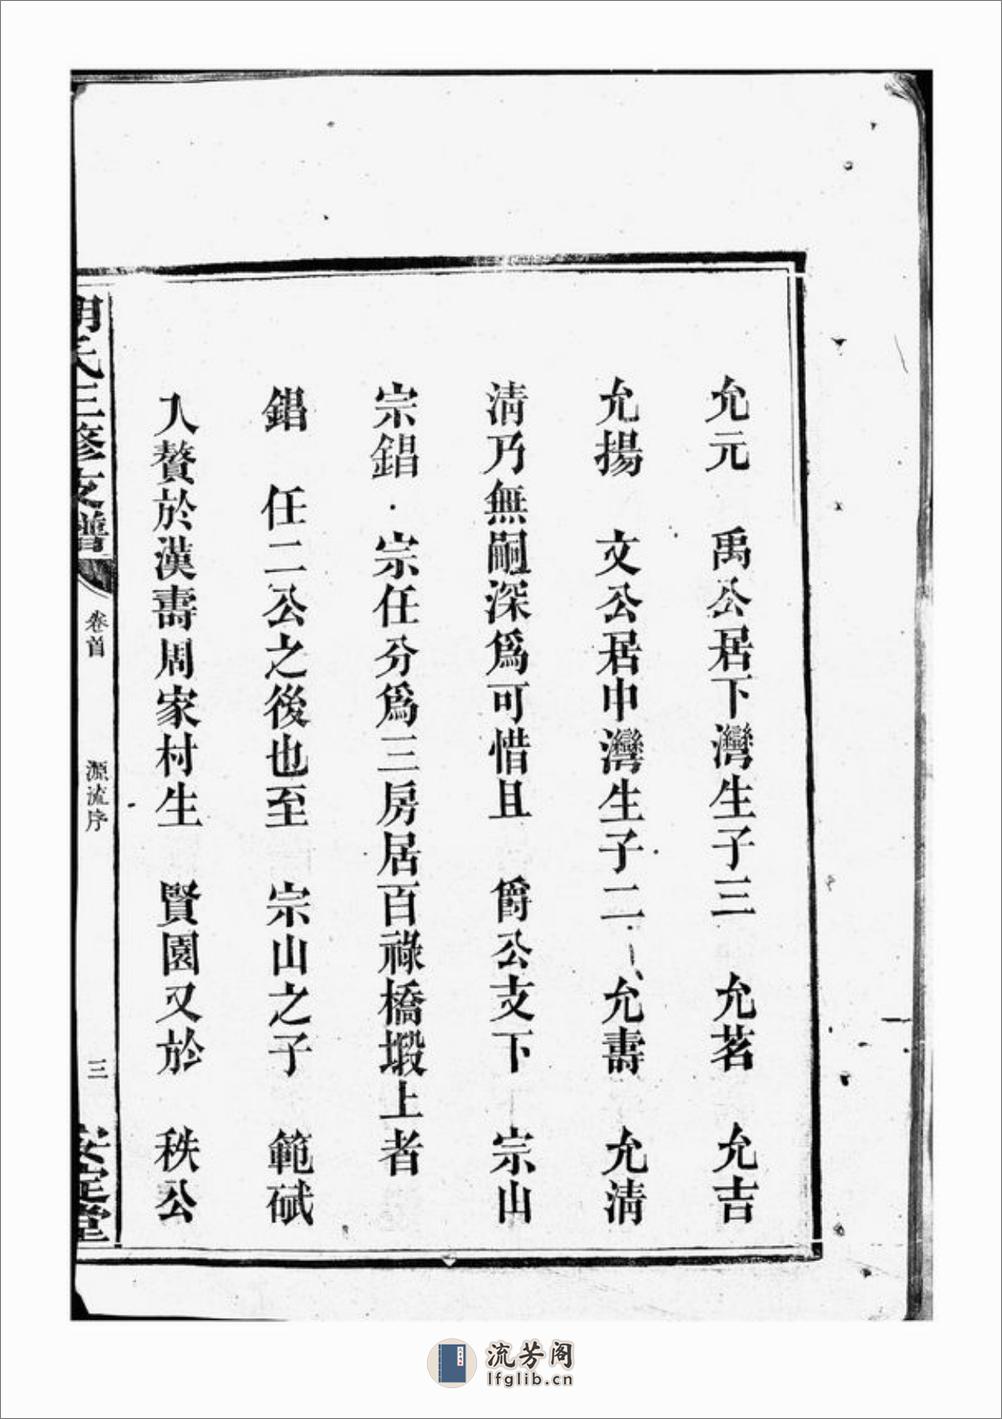 允元　禹公居下灣生子三　允茗　允吉
允揚　文公居中灣生子二　允壽　允清
清乃無嗣深爲可惜且　爵公支下　宗山
宗錩　宗任分爲三房居百祿橋塅上者
錩　任二公之後也至　宗山之子　範斌
入贅於漢壽周家村生　賢園又於　秩公
胡氏三修支譜
卷首
源流序
三
安定堂
流芳阁
lfglib.cn